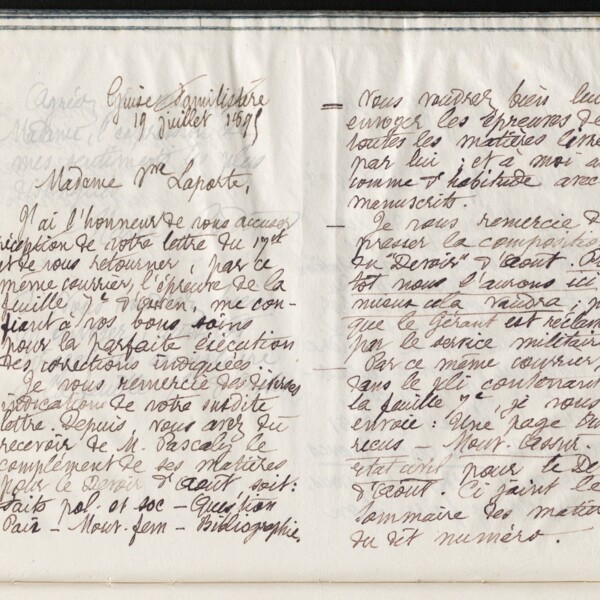 Guise Familistère
19 juillet 1895
Madame Vve Laporte,
J'ai l'honneur de vous accuser
réception de votre lettre du 17 ct
et de vous retourner, par ce
même courrier, l'épreuve de la
feuille 7e d'Owen, me con-
fiant à vos bons soins
pour la parfaite exécution
des corrections indiquées.
Je vous remercie des diverses
indications de votre susdite
lettre. Depuis, vous avez dû
recevoir de M. Pascaly le
complément de ses matières
pour le Devoir d'août soit:
Faits pol. et soc — Question
Paix — Mouv. fem — Bibliographie,
= Vous voudrez bien lui
envoyer les épreuves de
toutes les matières livré
par lui; et à moi au
comme d'habitude avec
manuscrits.
— Je vous remercie de
presser la composition
du "Devoir" d'août. Plu
tôt nous l'aurons ici,
mieux cela vaudra; p
que le Gérant est réclam
par le service militair
— Par ce même courrier,
dans le pli contenant
la feuille 7e, je vous
envoie: Une page
reçus — Mouv. assur.
et statuts pour le De
d'août. Ci joint le
sommaire des matiè
du dit numéro.